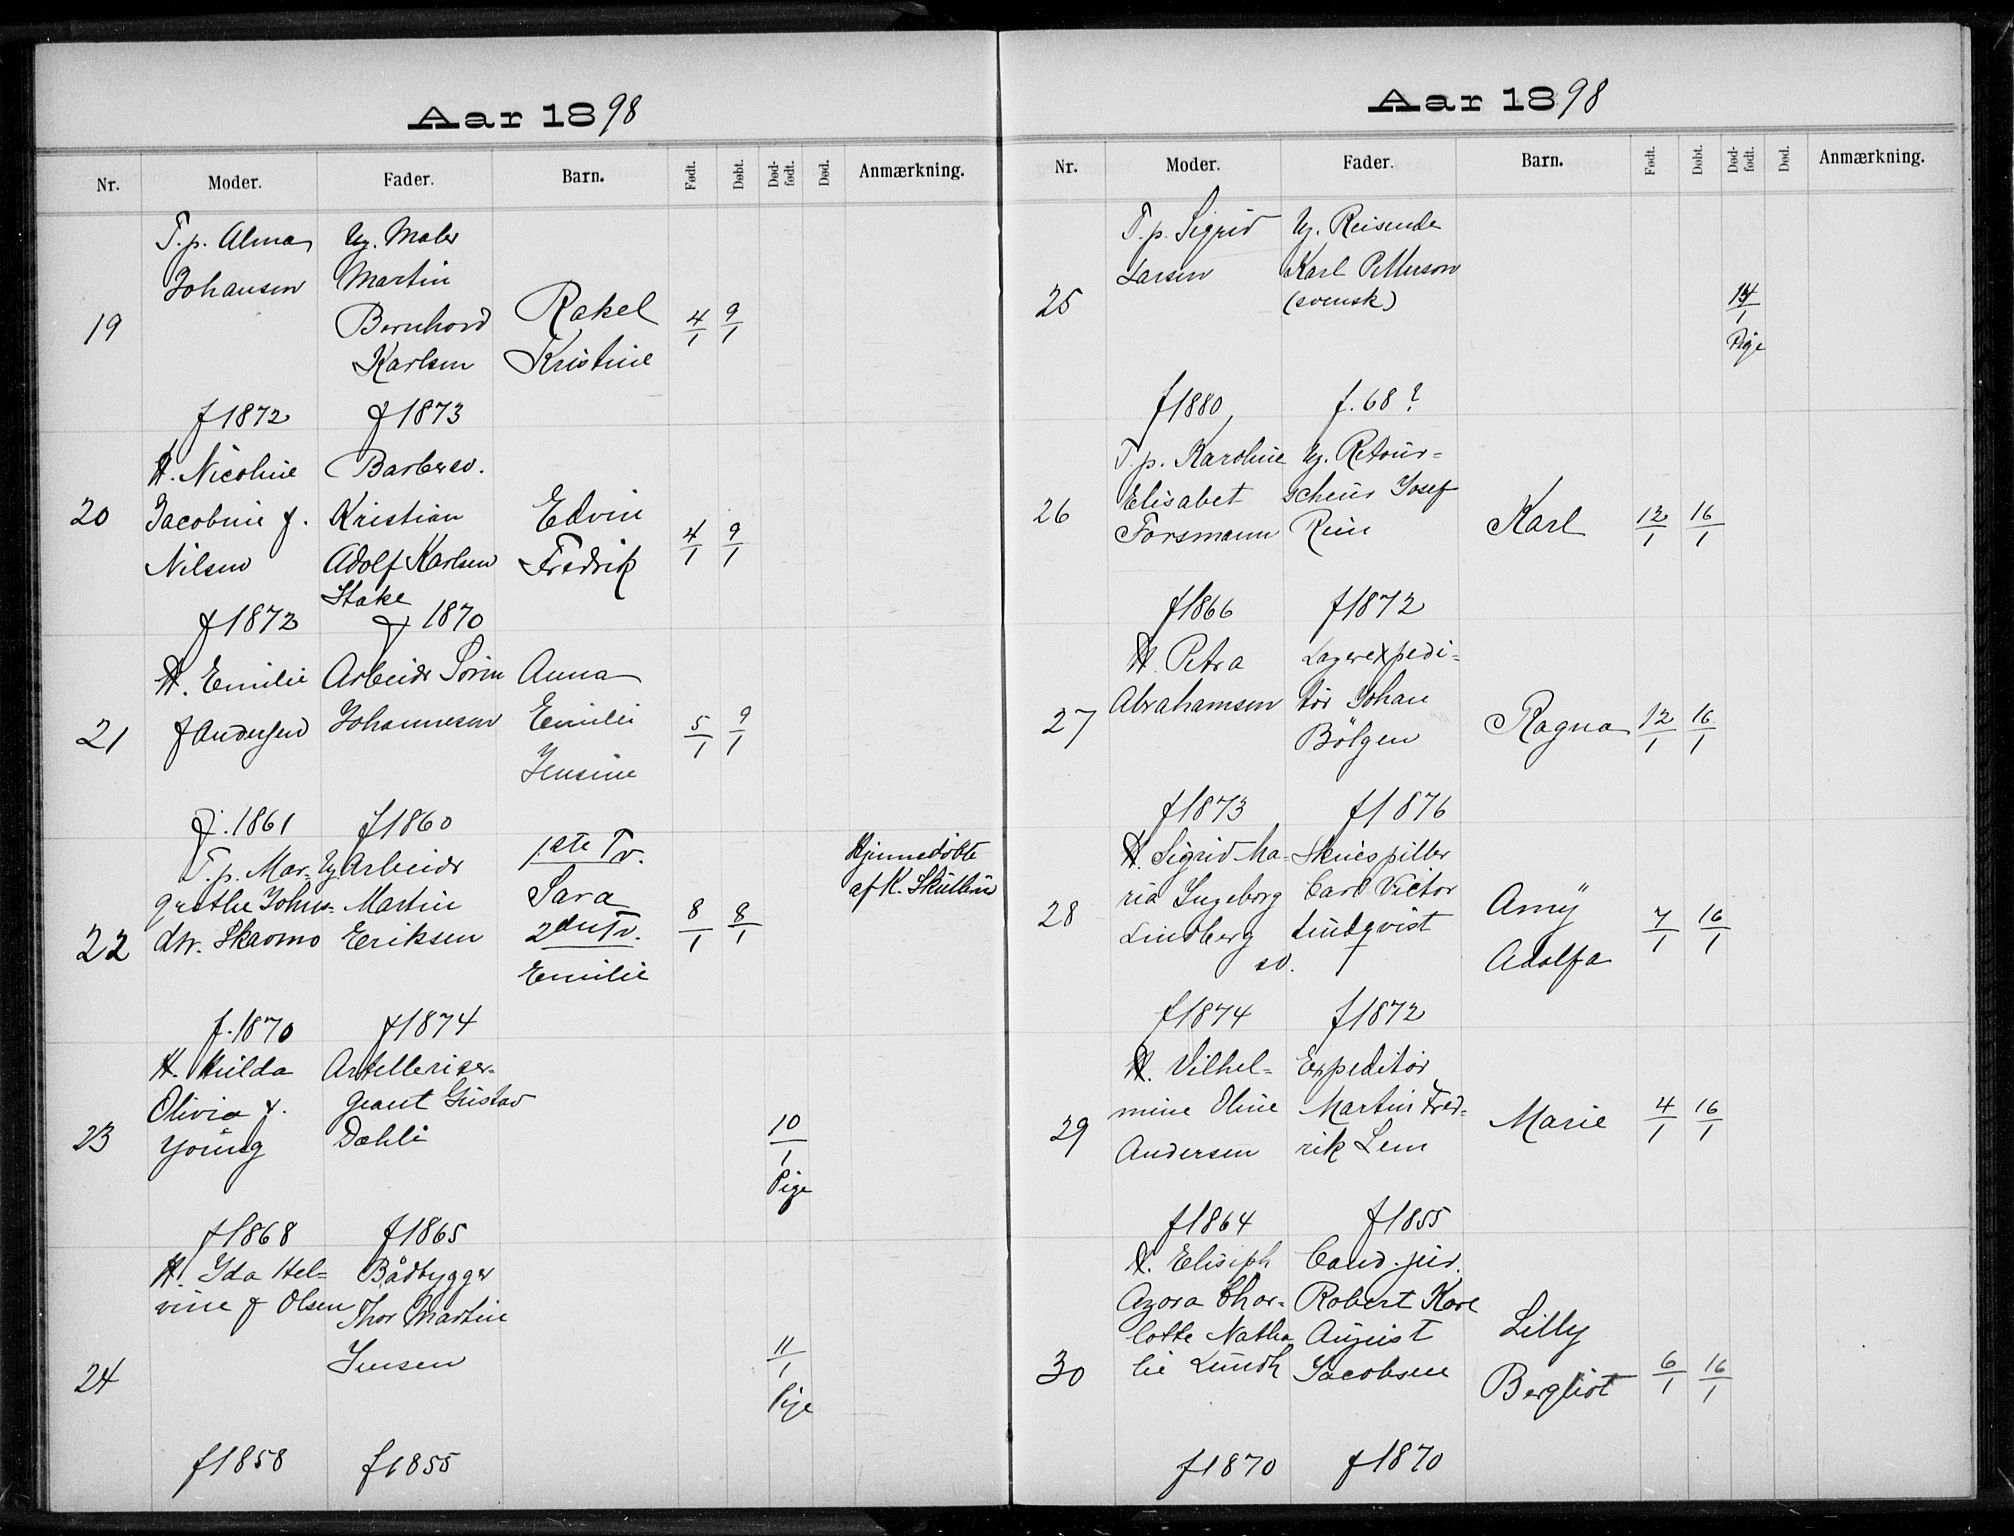 Aar 1898
Nr. Moder. Fader. Barn. Født. Døbt. Død-født. Død. Anmærkning.
19
T. p. Alma
Johansen
f 1872
Ug. Maler
Martin
Bernhard
Karlsen
f 1873
Rakel
Kristine
4/1 9/1
20
H. Nicoline
Jacobine f.
Nilsen
f 1872
Barbersv.
Kristian
Adolf Karlsen
Stake
f 1870
Edvin
Fredrik
4/1 9/1
21
H. Emilie
f Andersen
f. 1861
Arbeidr Sørin
Johannesen
f 1860
Anna
Emilie
Jensine
5/1 9/1
22
T. p. Mar-
grethe Johns-
dtr. Skaomo
f. 1870
Ug. Arbeidr
Martin
Eriksen
f 1874
1ste Tv.
Sara
2den Tv.
Emilie
8/1 8/1
Hjemmedøbte
af K.
23
H. Hilda
Olivia f.
Young
f 1868
Artilleriser-
geant Gustav
Dahli
f 1865
10/1
Pige
24
H. Ida Hel-
vine f Olsen
f 1858
Bådbygger
Thor Martin
Jensen
f 1855
11/1
Pige
Aar 1898
Nr. Moder. Fader. Barn. Født. Døbt. Død-født. Død. Anmærkning.
25
T. p. Sigrid
Larsen
f 1880
Ug. Reisende
Karl Petterson
(svensk)
f. 68?
14/1
Pige
26
T. p. Karoline
Elisabet
Forsmann
f 1866
Ug. Retour-
scheur Josef
Rein
f 1872
Karl
12/1 16/1
27
H. Petra
Abrahamsen
f 1873
Lagerexpedi-
tør Johan
Bölgen
f 1876
Ragna
12/1 16/1
28
H. Sigrid Ma-
ria Ingeborg
Lindberg
sv.
f 1874
Skuespiller
Carl Victor
Lindqvist
f 1872
Amy
Adolfa
7/1 16/1
29
H. Vilhel-
mine Oline
Andersen
f 1864
Expeditør
Martin Fred-
rik Lem
f 1855
Marie
4/1 16/1
30
H. Elisiph
Azora Char-
lotte Natha
lie Lundh
f 1870
Cand. jur.
Robert Karl
August
Jacobsen
f 1870
Lilly
Bergliot
6/1 16/1